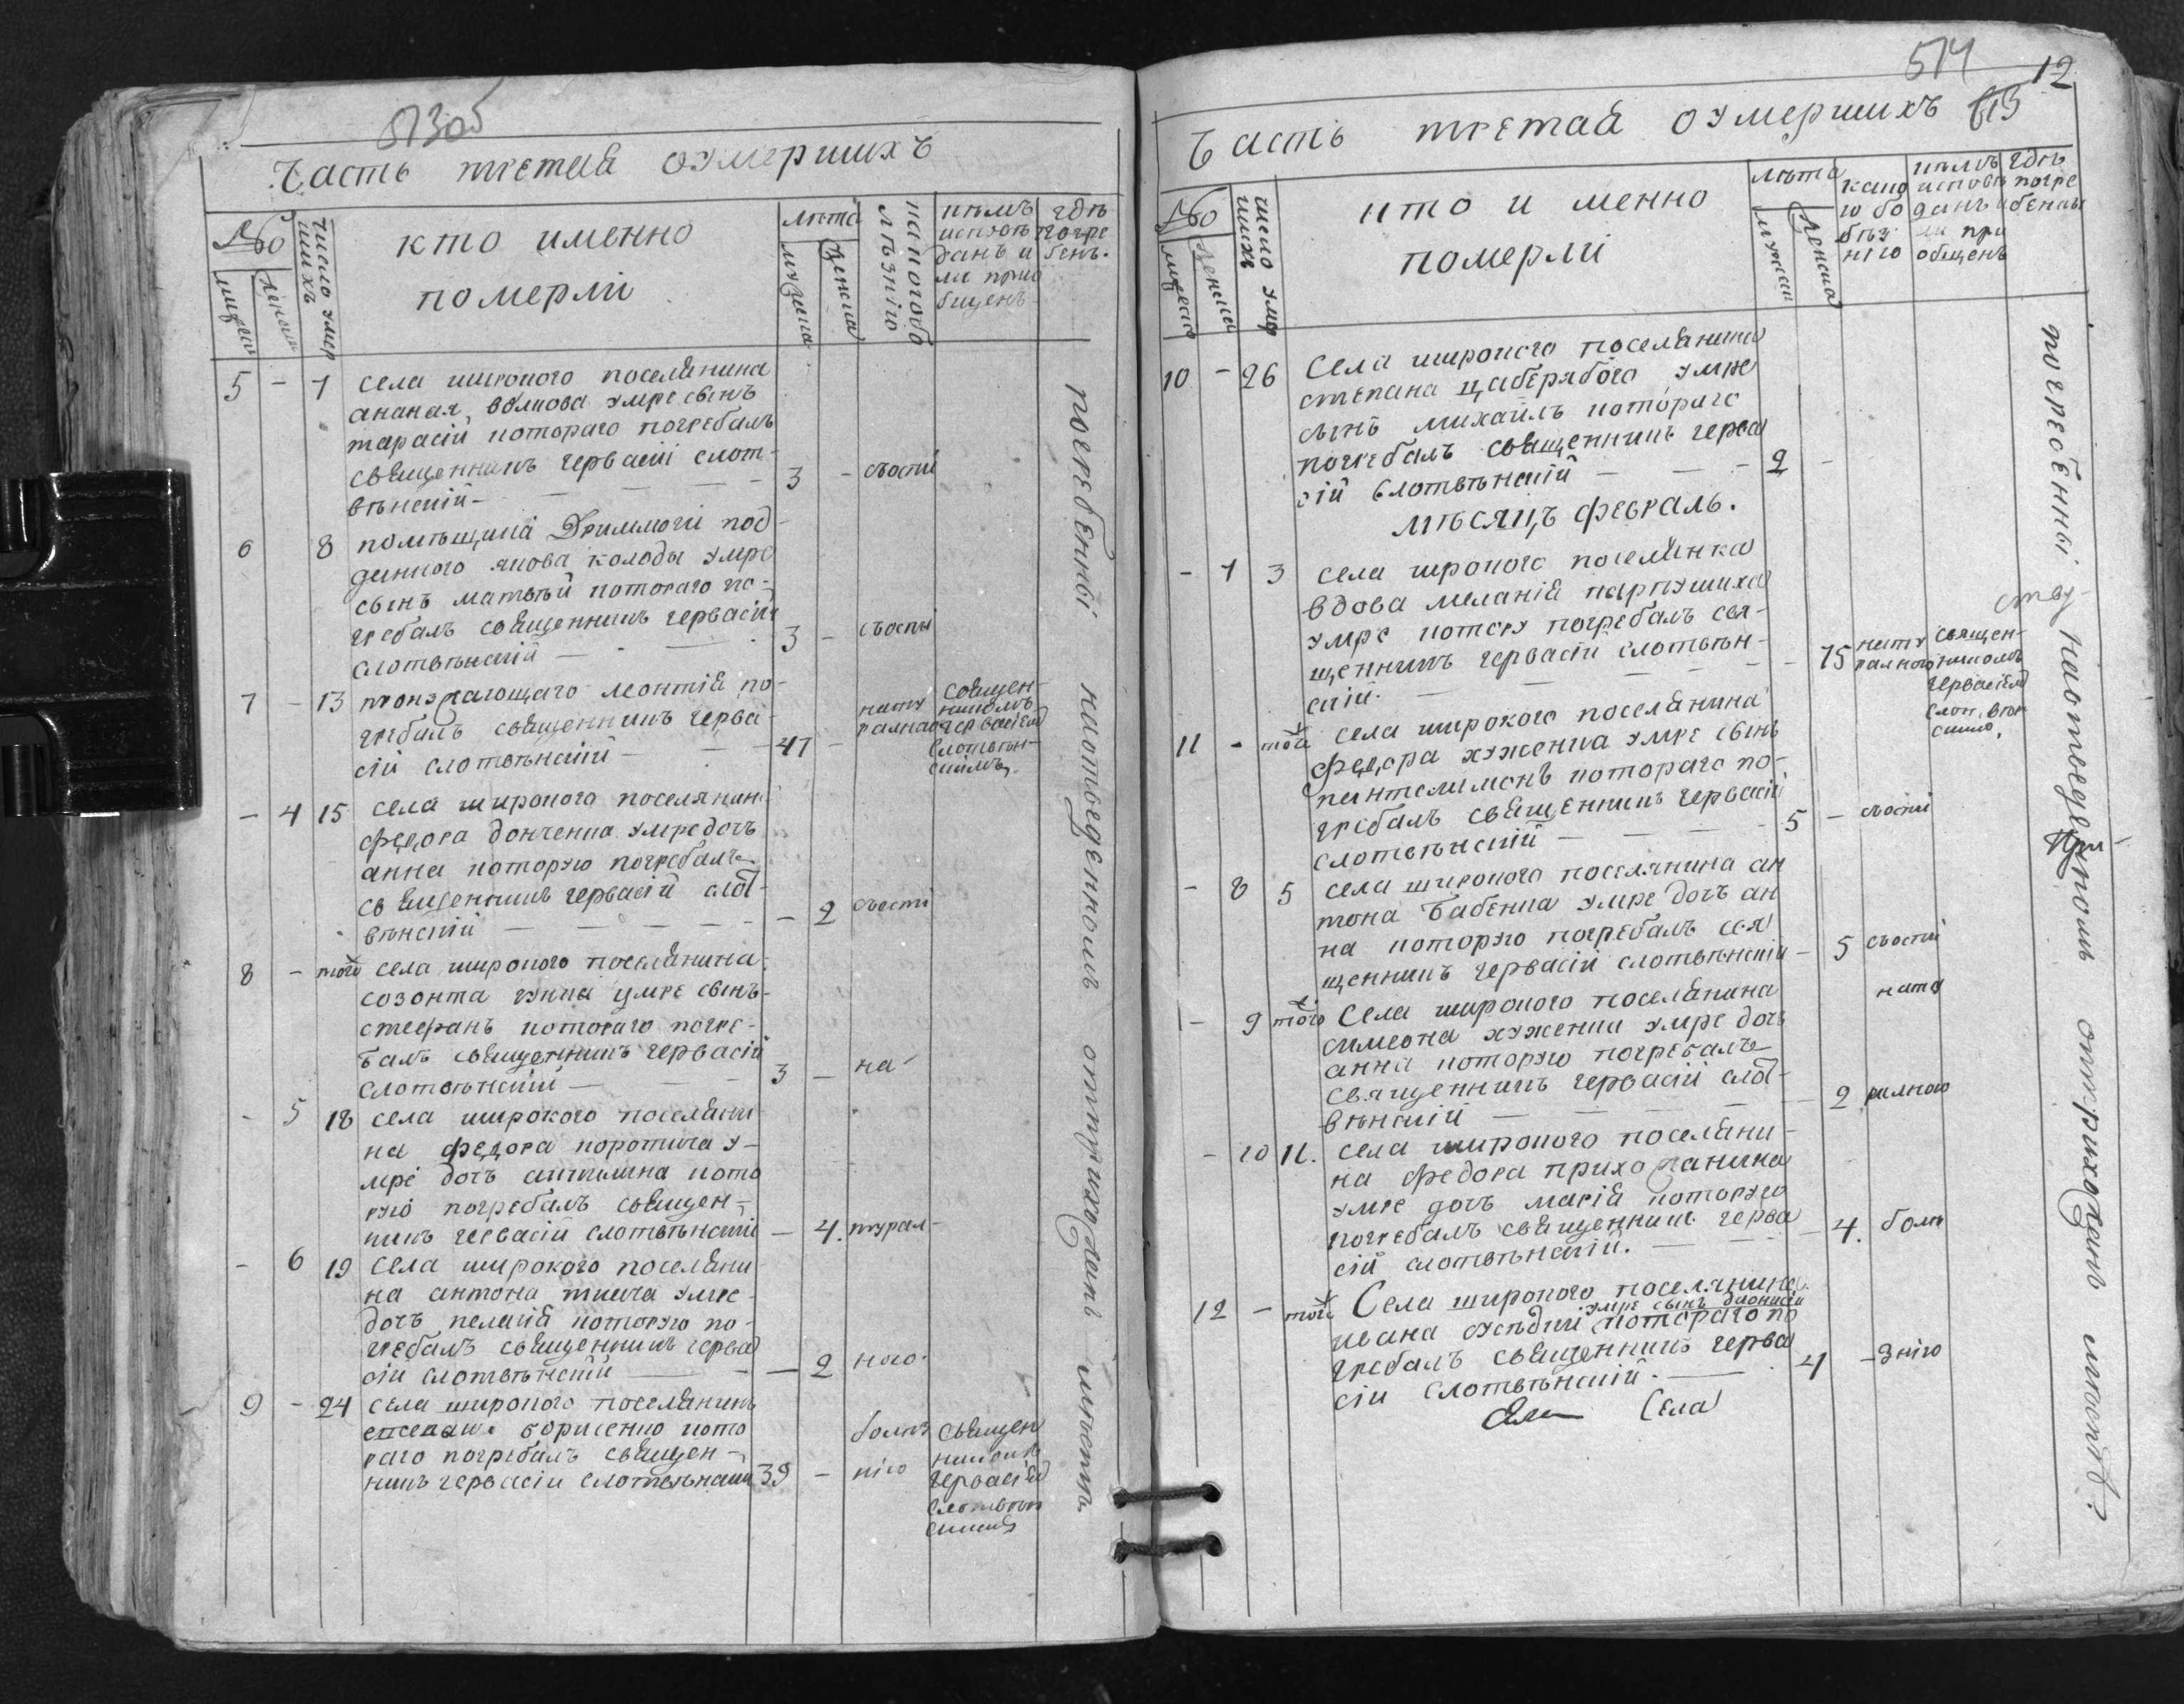 513об
Часть третая оумершихъ
№
мужеска
женска
число умершихъ
кто именно
померли
лѣта
мужеска
женска
какого болѣзнію
кѣмъ
исповѣ
данъ и
ли прио
бщенъ
гдѣ
погре
бенъ.
5 - 7 села широкого поселянина
анания волкова умре сынъ
тарасій котораго погребалъ
священникъ гервасій слот-
вѣнскій - 3 - съоспи
6 8 помѣщика
данного якова колоды умре
сынъ матвѣй котораго по-
гребалъ священникъ гервасій
слотвѣнскій - 3 - съоспы
7 - 13 леонтія по-
гребалъ священникъ герва-
сій слотвѣнскій - 47 -
нату
ралною
священ-
никомъ
гервасіем
слотвѣн-
скимъ
- 4 15 села широкого поселянина
федора донченка умре дочь
анна которую погребалъ
священникъ гервасій слот-
вѣнскій - - 2 съоспі
8 - того села широкого поселянина
созонта гупка умре сынъ
стефанъ котораго погре-
балъ священникъ гервасій
слотвѣнскій - 3 - на-
- 5 18 села широкого поселяни
на федора коротича у-
мре дочь акилина кото
рую погребалъ священ-
никъ гервасій слотвѣнскій - 4. турал-
- 6 19 села широкого поселяни
на антона ткача умре
дочь пелагія которую по-
гребалъ священникъ герва
сіи слотвѣнскій - 2 ного
9 - 24 села широкого поселянинъ
борисенко кото
раго погребалъ священ-
никъ гервасіи слотвѣнскій 39 -
болѣз
нію
священ
никомъ
гервасіем
слотвѣн
скимъ
погребенны наотведенномъ отприхожанъ мѣсте
514
12
513
Часть третая оумершихъ
№
мужеска
женска
число умершихъ
кто и менно
померлі
лѣта
мужеска
женска
како
ю бо
лѣз
нію
кѣмъ
исповѣ
данъ и
ли при
общенъ
гдѣ
погре
бенны
10 - 26 Села широкого поселянина
степана цаберябого умре
сынъ михайлъ котораго
погребалъ священникъ герва
сій слотвѣнскій - - - 2 -
мѣсяцъ февраль.
- 7 3 села широкого поселянка
вдова меланія карпушиха
умре котору погребалъ свя-
щенникъ гервасій слотвѣн-
скій. - 75
нату
ралною
священ-
никомъ
гервасіем
слотвѣн
скимъ,
11 - того села широкого поселянина
федора хуженка умре сынъ
пантелимонъ котораго по-
гребалъ священникъ гервасій
слотвѣнскій - 5 - съоспи
- 8 5 села широкого поселянина ан
тона бабенка умре дочь ан
на которую погребалъ свя
щенникъ гервасій слотвѣнскій - 5 съоспи
- 9 того Села широкого поселянина
симеона хуженка умре дочь
анна которую погребалъ
священникъ гервасій слот-
вѣнскій - 2
нату
ралною
- 10 11. села широкого поселяни-
на федора прихожанина
умре дочь марія которую
погребалъ священникъ герва
сій слотвѣнскій. - 4. болѣ
12 - того Села широкого поселянина
умре сынъ дионисій
ивана котораго по
гребалъ священникъ герва
сіи слотвѣнскій. - 4 - знію
Села
погребенны наотведенномъ отприхожанъ мѣсте